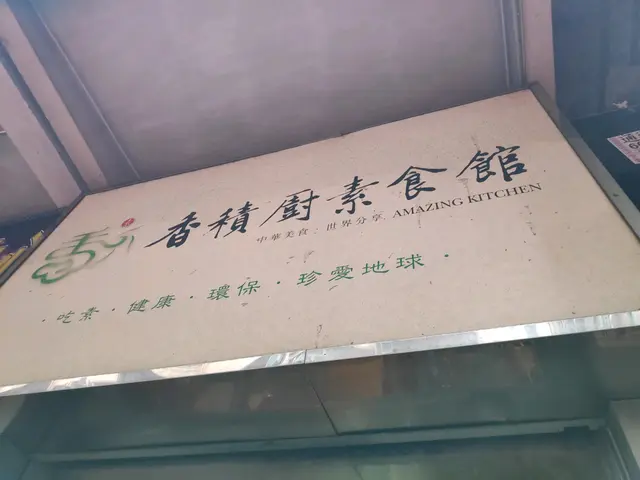 香積廚素食館
中華美食．世界分享 AMAZING KITCHEN
·吃素·健康·環保·珍愛地球·